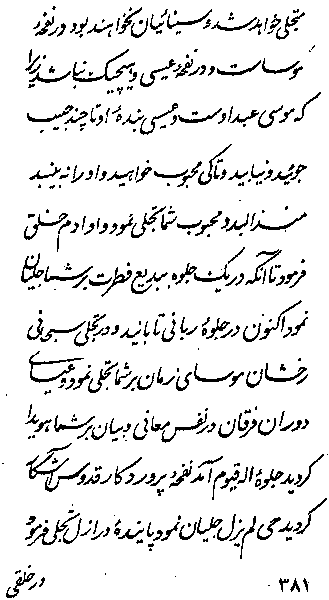 متجلی خواهد شد و سینائیان نخواهند بود در نفحهٔ
موسا ست و در نفحهٔ عیسی و هیچیک نباشد زیرا
که موسی عبد اوست و عیسی بندهٔ او تا چند حبیب
جوئید و نیابید و تا کی محبوب خواهید و او را نه بینید
منذ البدء محبوب شما تجلی نمود و او ادم خلق
فرمود تا آنکه در یک جلوه ببدیع فطرت بر شما جلیان
نمود اکنون در جلوهٔ ربانی تابانید و در تجلی سبحانی
رخشان موسای زمان بر شما تجلی نمود و عیسای
دوران فرقان در نفس معانی و بیان بر شما هویدا
کردید جلوهٔ اله قیوم آمد نفحهٔ پروردکار قدوس آشکار
کردید حی لم یزل جلیان نمود پایندهٔ در ازل تجلی فرمود
در خلقی
۳۸۱